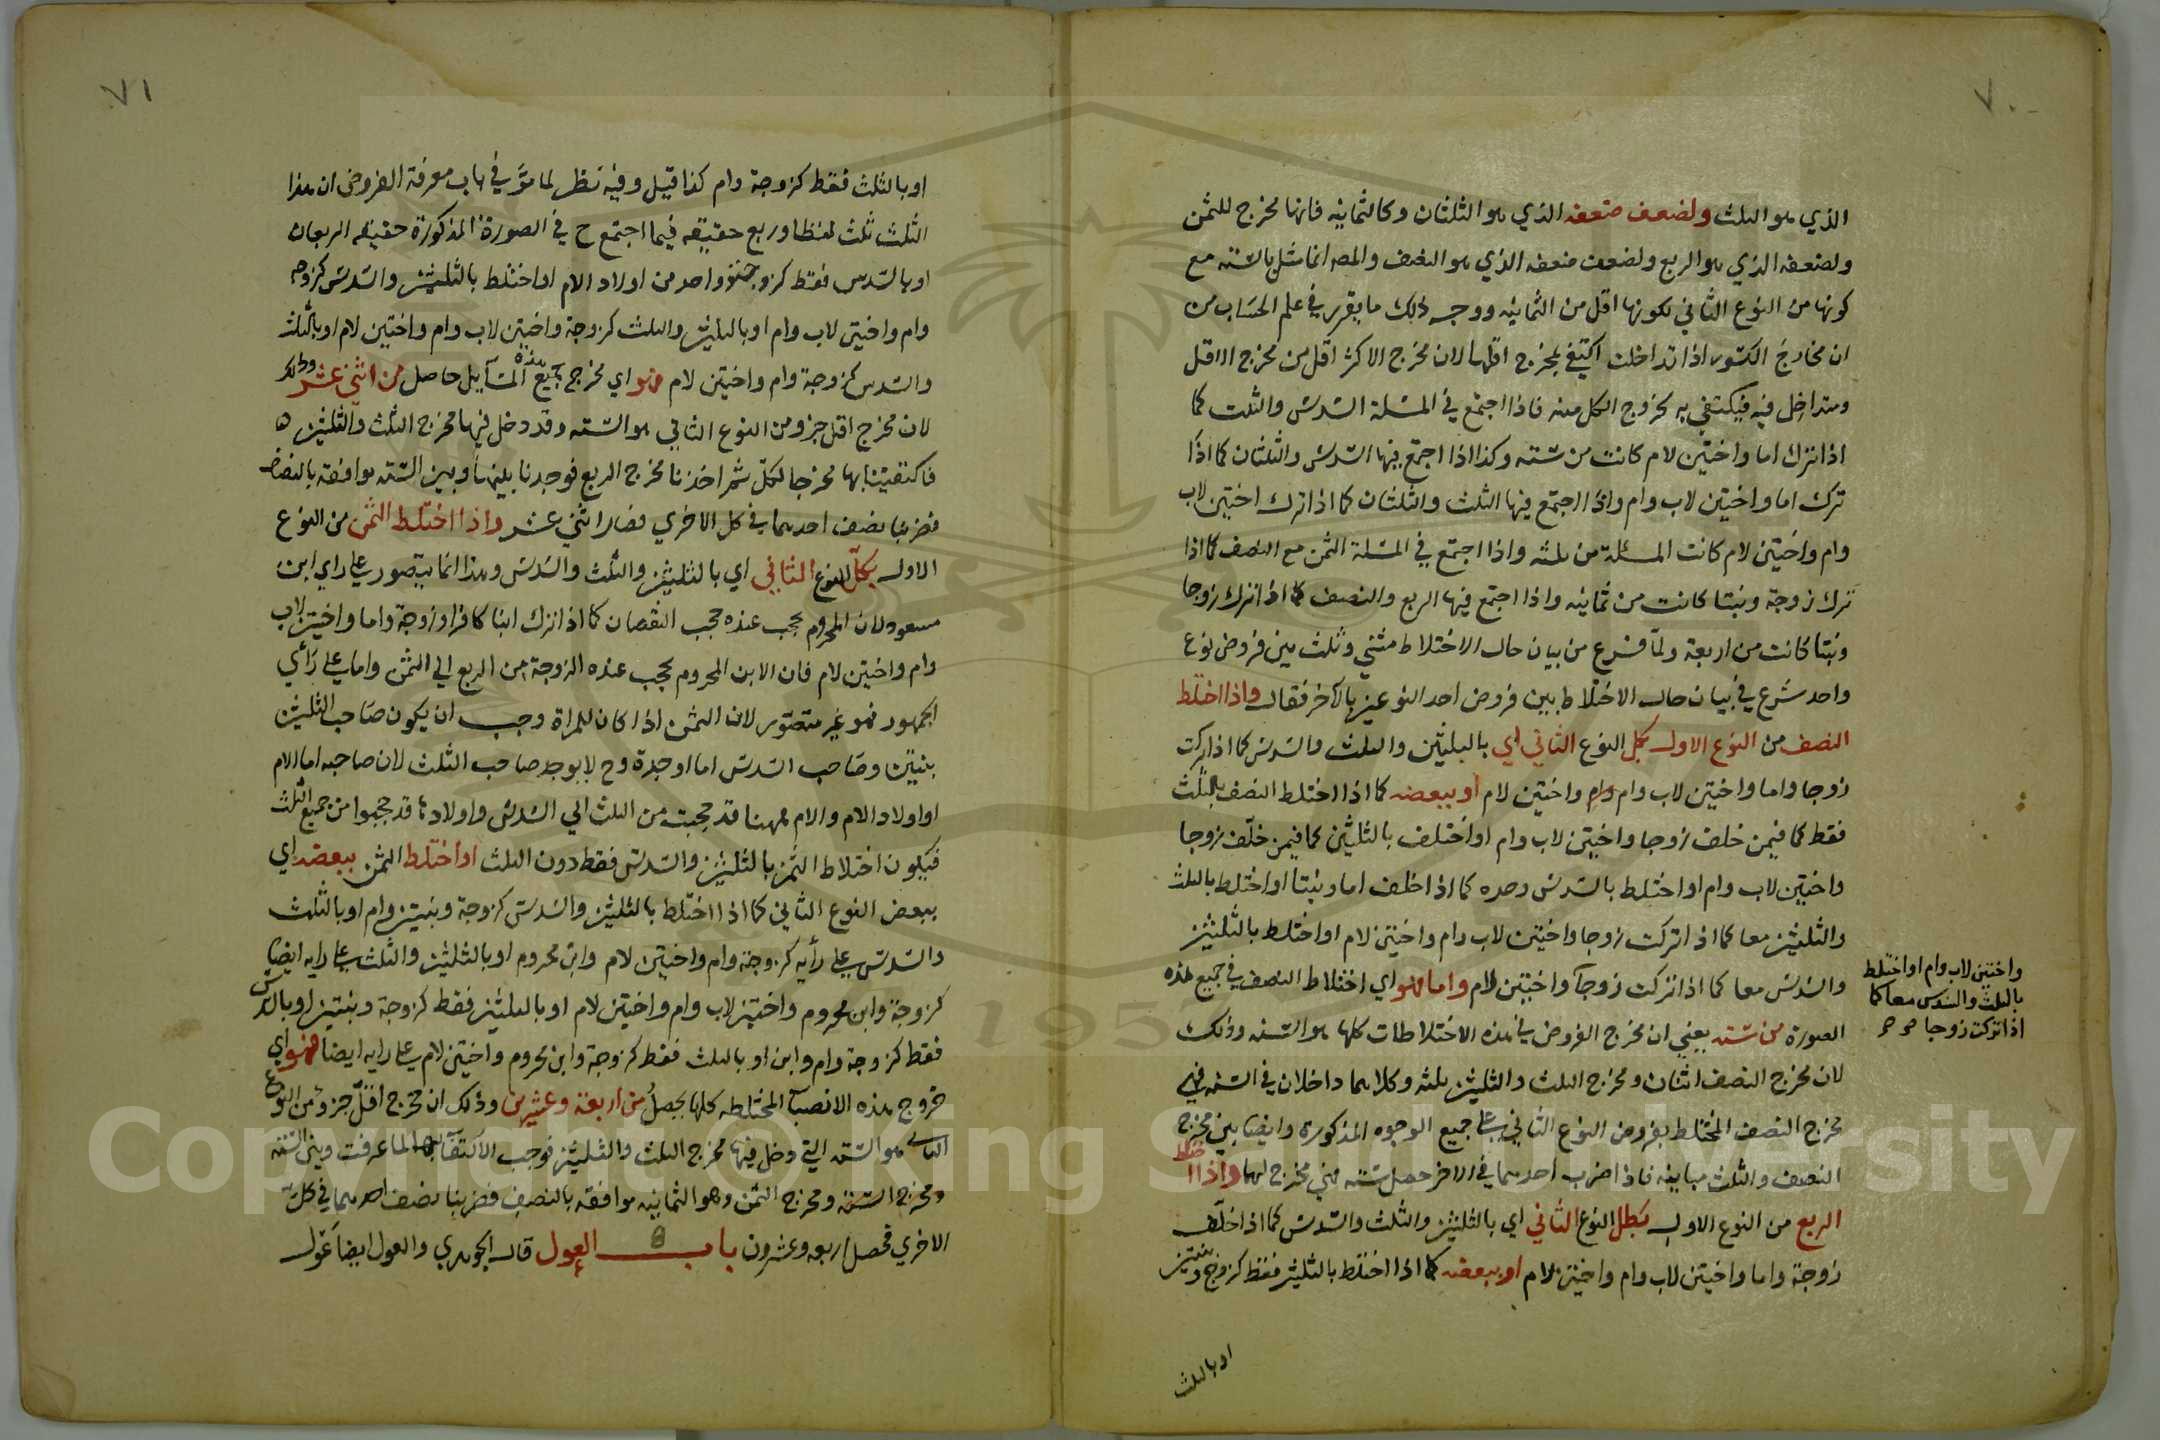 ٧٠
الذي هو الثلث ولضعف ضعفه الذي هو الثلثان وكالثمانيه فانها مخرج للثمن
ولضعفه الذي هو الربع ولضعف ضعفه الذي هو النصف والمصه انما مثل بالسته مع
كونها من النوع الثاني لكونها اقل من الثمانيه ووجه ذلك ما يقرر في علم الحساب من
ان مخارج الكسور اذا تداخلت اكتفي بمخرج اقلها لان مخرج الاكثر اقل من مخرج الاقل
ومتداخل فيه فيكتفي به لخروج الكل منه فاذا اجتمع في المسئلة السدس والثلث كما
اذا ترك اما واختين لام كانت من سته وكذا اذا اجتمع فيها السدس والثلثان كما اذا
ترك اما واختين لاب وام واذا اجتمع فيها الثلث والثلثان كما اذا ترك اختين لاب
وام واختين لام كانت المسئلة من ثلثه واذا اجتمع في المسئلة الثمن مع النصف كما اذا
ترك زوجة وبنتا كانت من ثمانيه واذا اجتمع فيها الربع والنصف كما اذا ترك زوجا
وبنتا كانت من اربعة ولما فرغ من بيان حال الاختلاط مثني وثلث بين فروض نوع
واحد شرع في بيان حال الاختلاط بين فروض احد النوعين بالآخر فقال واذا اختلط
النصف من النوع الاول بكل النوع الثاني اي بالثلثين والثلث والسدس كما اذا تركت
زوجا واما واختين لاب وام وام واختين لام او ببعضه كما اذا اختلط النصف بالثلث
فقط كما فيمن خلف زوجا واختين لاب وام او اختلف بالثلثين كما فيمن خلف زوجا
واختين لاب وام او اختلط بالسدس وحده كما اذا خلف اما وبنتا او اختلط بالثلث
والثلثين معا كما اذا تركت زوجا واختين لاب وام واختين لام او اختلط بالثلثين
والسدس معا كما اذا تركت زوجا واختين لام واما فهو اي اختلاط النصف في جميع هذه
الصورة من سته يعني ان مخرج الفروض في هذه الاختلاطات كلها هو السته وذلك
لان مخرج النصف اثنان ومخرج الثلث والثلثين ثلثه وكلاهما داخلان في السته فهي
مخرج النصف المختلط بفروض النوع الثاني على جميع الوجوه المذكورة وايضا بين مخرج
النصف والثلث مباينه فاذا ضرب احدهما في الاخر حصل سته فهي مخرج لهما واذا اختلط
الربع من النوع الاول بكل النوع الثاني اي بالثلثين والثلث والسدس كما اذا خلف
زوجة واما واختين لاب وام واختين لام او ببعضه كما اذا اختلط بالثلثين فقط كزوج وبنتين
واختين لاب وام او اختلط
بالثلث والسدس معا كما
اذا تركت زوجا
او بالثلث
٧١
او بالثلث فقط كزوجة وام كذا قيل وفيه نظر لما مر في باب معرفة الفروض ان هذا
الثلث ثلث لفظا وربع حقيقه فيما اجتمع ح في الصورة المذكورة حقيقه الربعان
او بالسدس فقط كزوجة وواحد من اولاد الام او اختلط بالثلثين والسدس كزوجه
وام واختين لاب وام او بالثلثين والثلث كزوجة واختين لاب وام واختين لام او بالثلث
والسدس كزوجة وام واختين لام فهو اي مخرج جميع هذه المسائل حاصل من اثني عشر وذلك
لان مخرج اقل جزو من النوع الثاني هو السته وقد دخل فيها مخرج الثلث والثلثين ه
فاكتفينا بها مخرجا للكل ثم اخذنا مخرج الربع فوجدنا بينهما وبين السته موافقه بالنصف
فضربنا نصف احدهما في كل الاخري فصار اثني عشر واذا اختلط الثمن من النوع
الاول بكل النوع الثاني اي بالثلثين والثلث والسدس وهذا انما يتصور على راي ابن
مسعود لان المحروم يحجب عنده حجب النقصان كما اذا ترك ابنا كافرا وزوجة واما واختين لاب
وام واختين لام فان الابن المحروم يحجب عنده الزوجة من الربع الي الثمن واما على رأي
الجمهور فهو غير متصور لان الثمن اذا كان للمراة وجب ان يكون صاحب الثلثين
بنتين وصاحب السدس اما او جدة وح لا يوجد صاحب الثلث لان صاحبه اما الام
او اولاد الام والام ههنا قد حجبت من الثلث الي السدس واولادها قد حجبوا من جميع الثلث
فيكون اختلاط الثمن بالثلثين والسدس فقط دون الثلث او اختلط الثمن ببعضه اي
ببعض النوع الثاني كما اذا اختلط بالثلثين والسدس كزوجة وبنيتن وام او بالثلث
والسدس على رأيه كزوجة وام واختين لام وابن محروم او بالثلثين والثلث على رايه ايضا
كزوجة وابن محروم واختين لاب وام واختين لام او بالثلثين فقط كزوجة وبنتين او بالسدس
فقط كزوجة وام وابن او بالثلث فقط كزوجة وابن محروم واختين لام على رايه ايضا فهو اي
خروج هذه الانصبآ المختلطه كلها يحصل من اربعة وعشرين وذلك ان مخرج اقل جزو من النوع
الثاني هو السته التي دخل فيها مخرج الثلث والثلثين فوجب الاكتفآ بها لما عرفت وبين السته
ومخرج السته ومخرج الثمن وهو الثمانيه موافقه بالنصف فضربنا نصف احدهما في كل
الاخري فحصل اربعه وعشرون باب العول قال الجوهري والعول ايضا عول